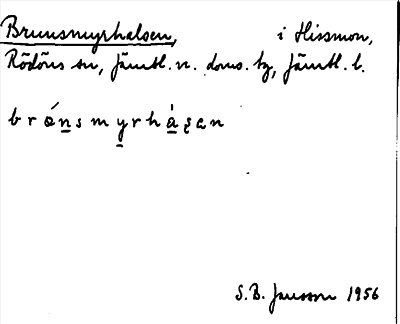 Brunsmyrhalsen, i Hissmon,
Rödöns sn, Jämtl. n. doms. tg, Jämtl. l.
br\u00f3nsmyrhàʂɛn
S.B. Jansson 1956